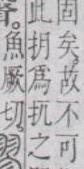 固矣。故不可
此抈爲扤之
聲。魚厥切。